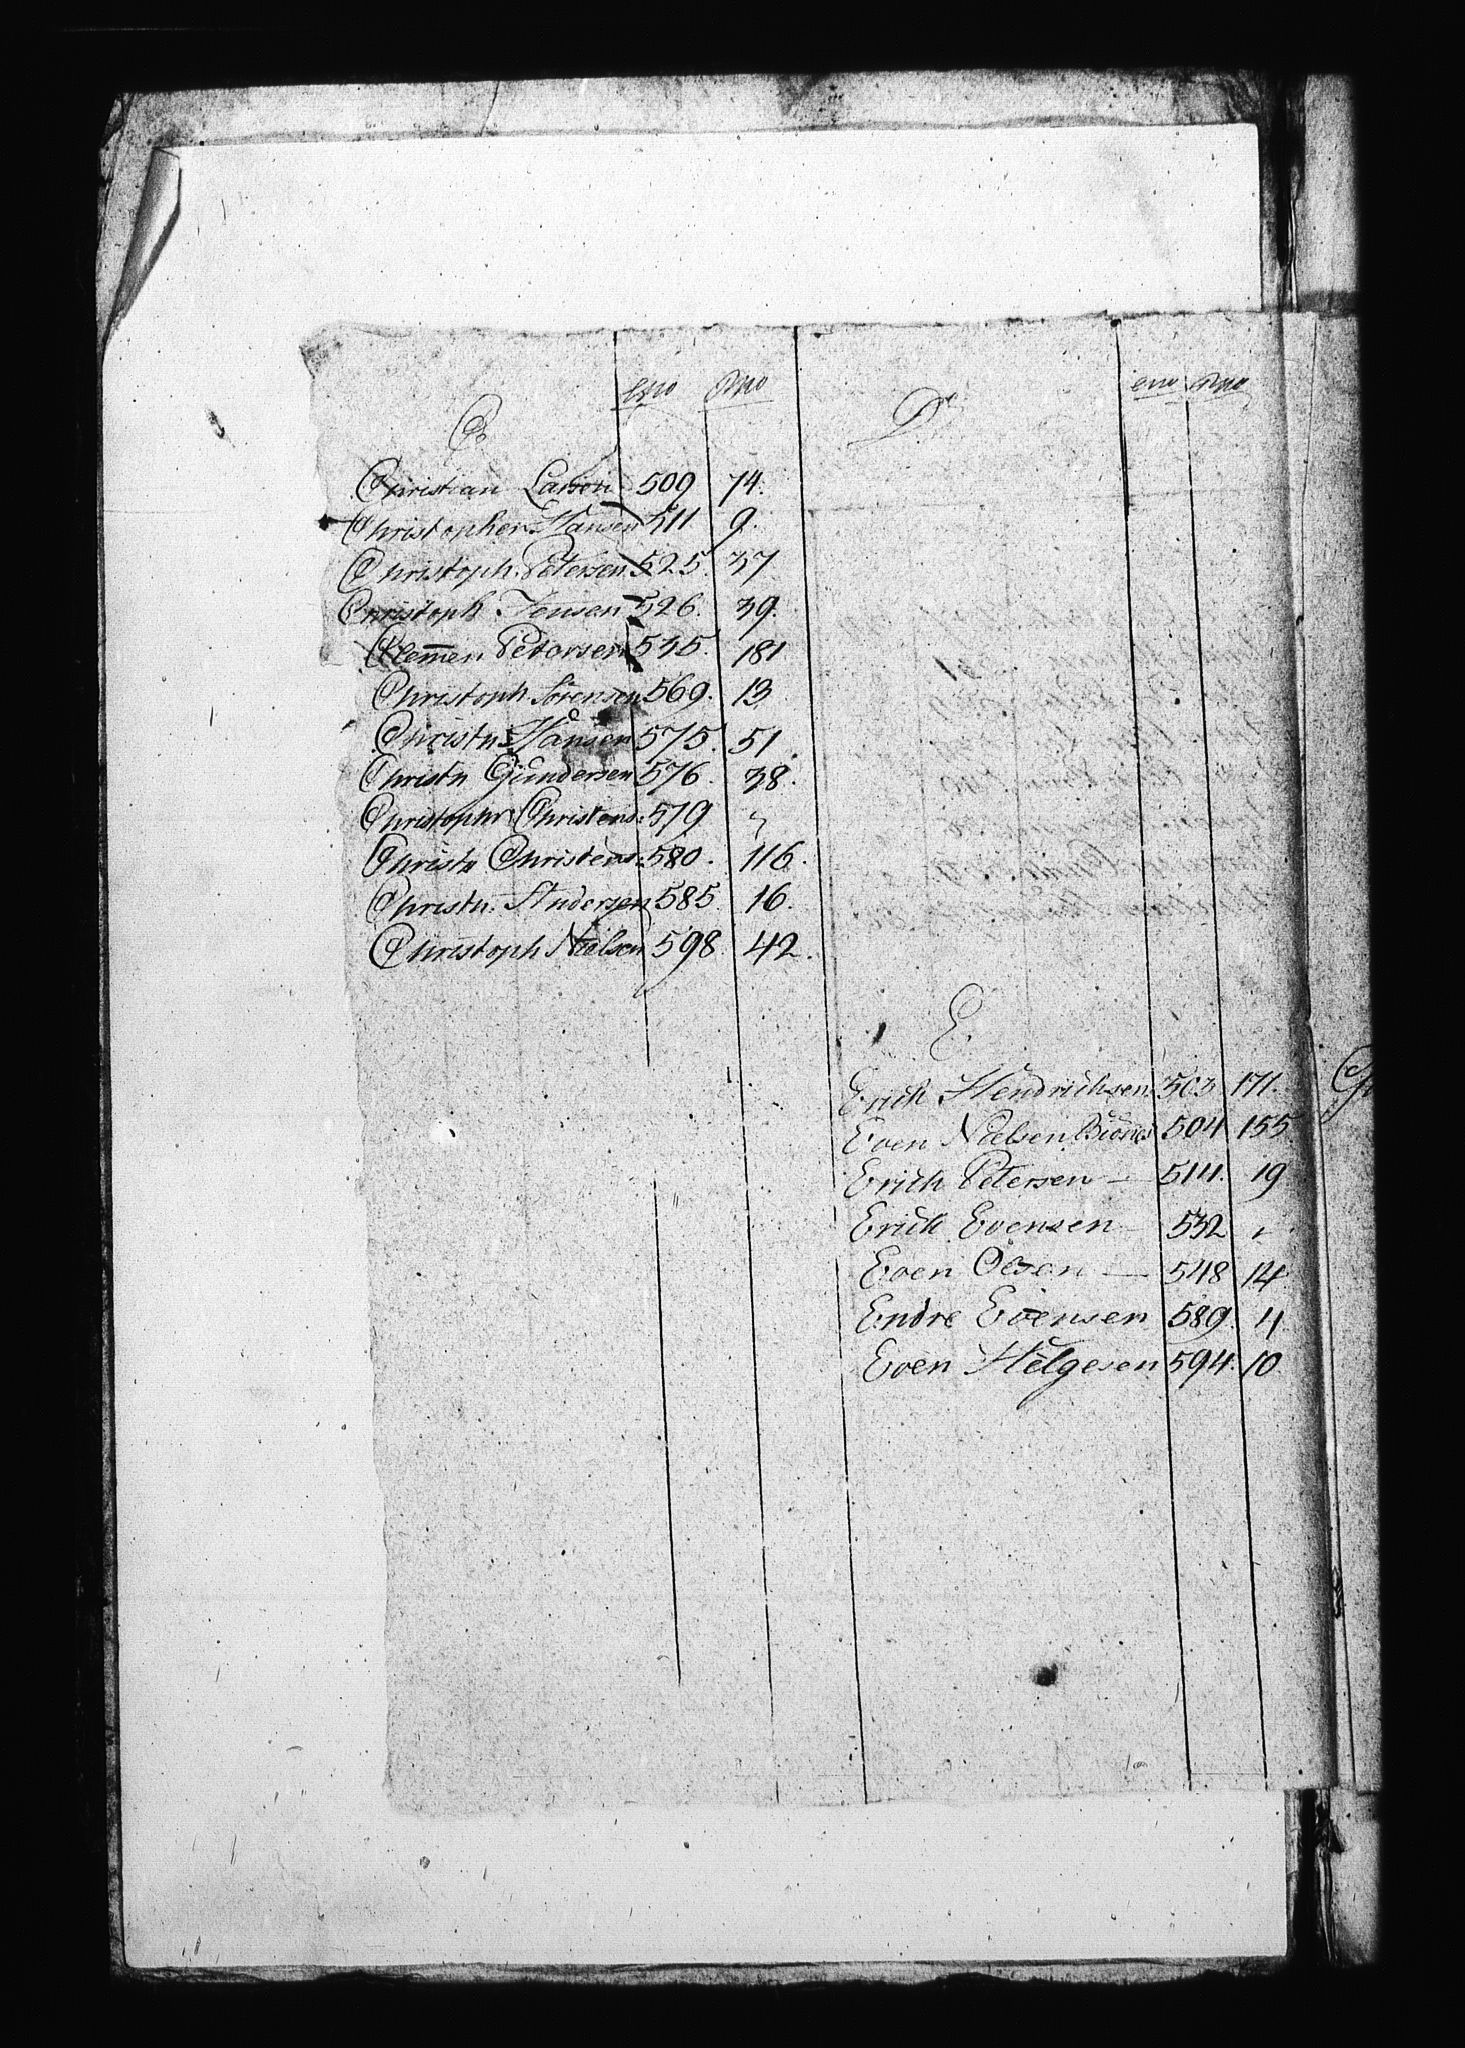 C.
Christian Larsen 509 74.
Christopher Hansen 511 9.
Christoph. Petersen 525. 37
Christoph Jensen 526. 39.
Clemmen Petersen 535. 181
Christoph Sörensen 569. 13
Christn Hansen 575. 51.
Christn Gundersen 576. 38.
Christophr Christens: 579 "
Christn Christens: 580. 116.
Christn. Andersen 585. 16.
Christoph Nielsen 598. 42.
D.
E.
Erich Hendrichsen 503 171.
Even Nielsen 504 155
Erich Petersen — 514. 19
Erich Evensen 532 "
Even Olsen — 548 14
Endre Evensen 589. 4.
Even Helgesen 594. 10.